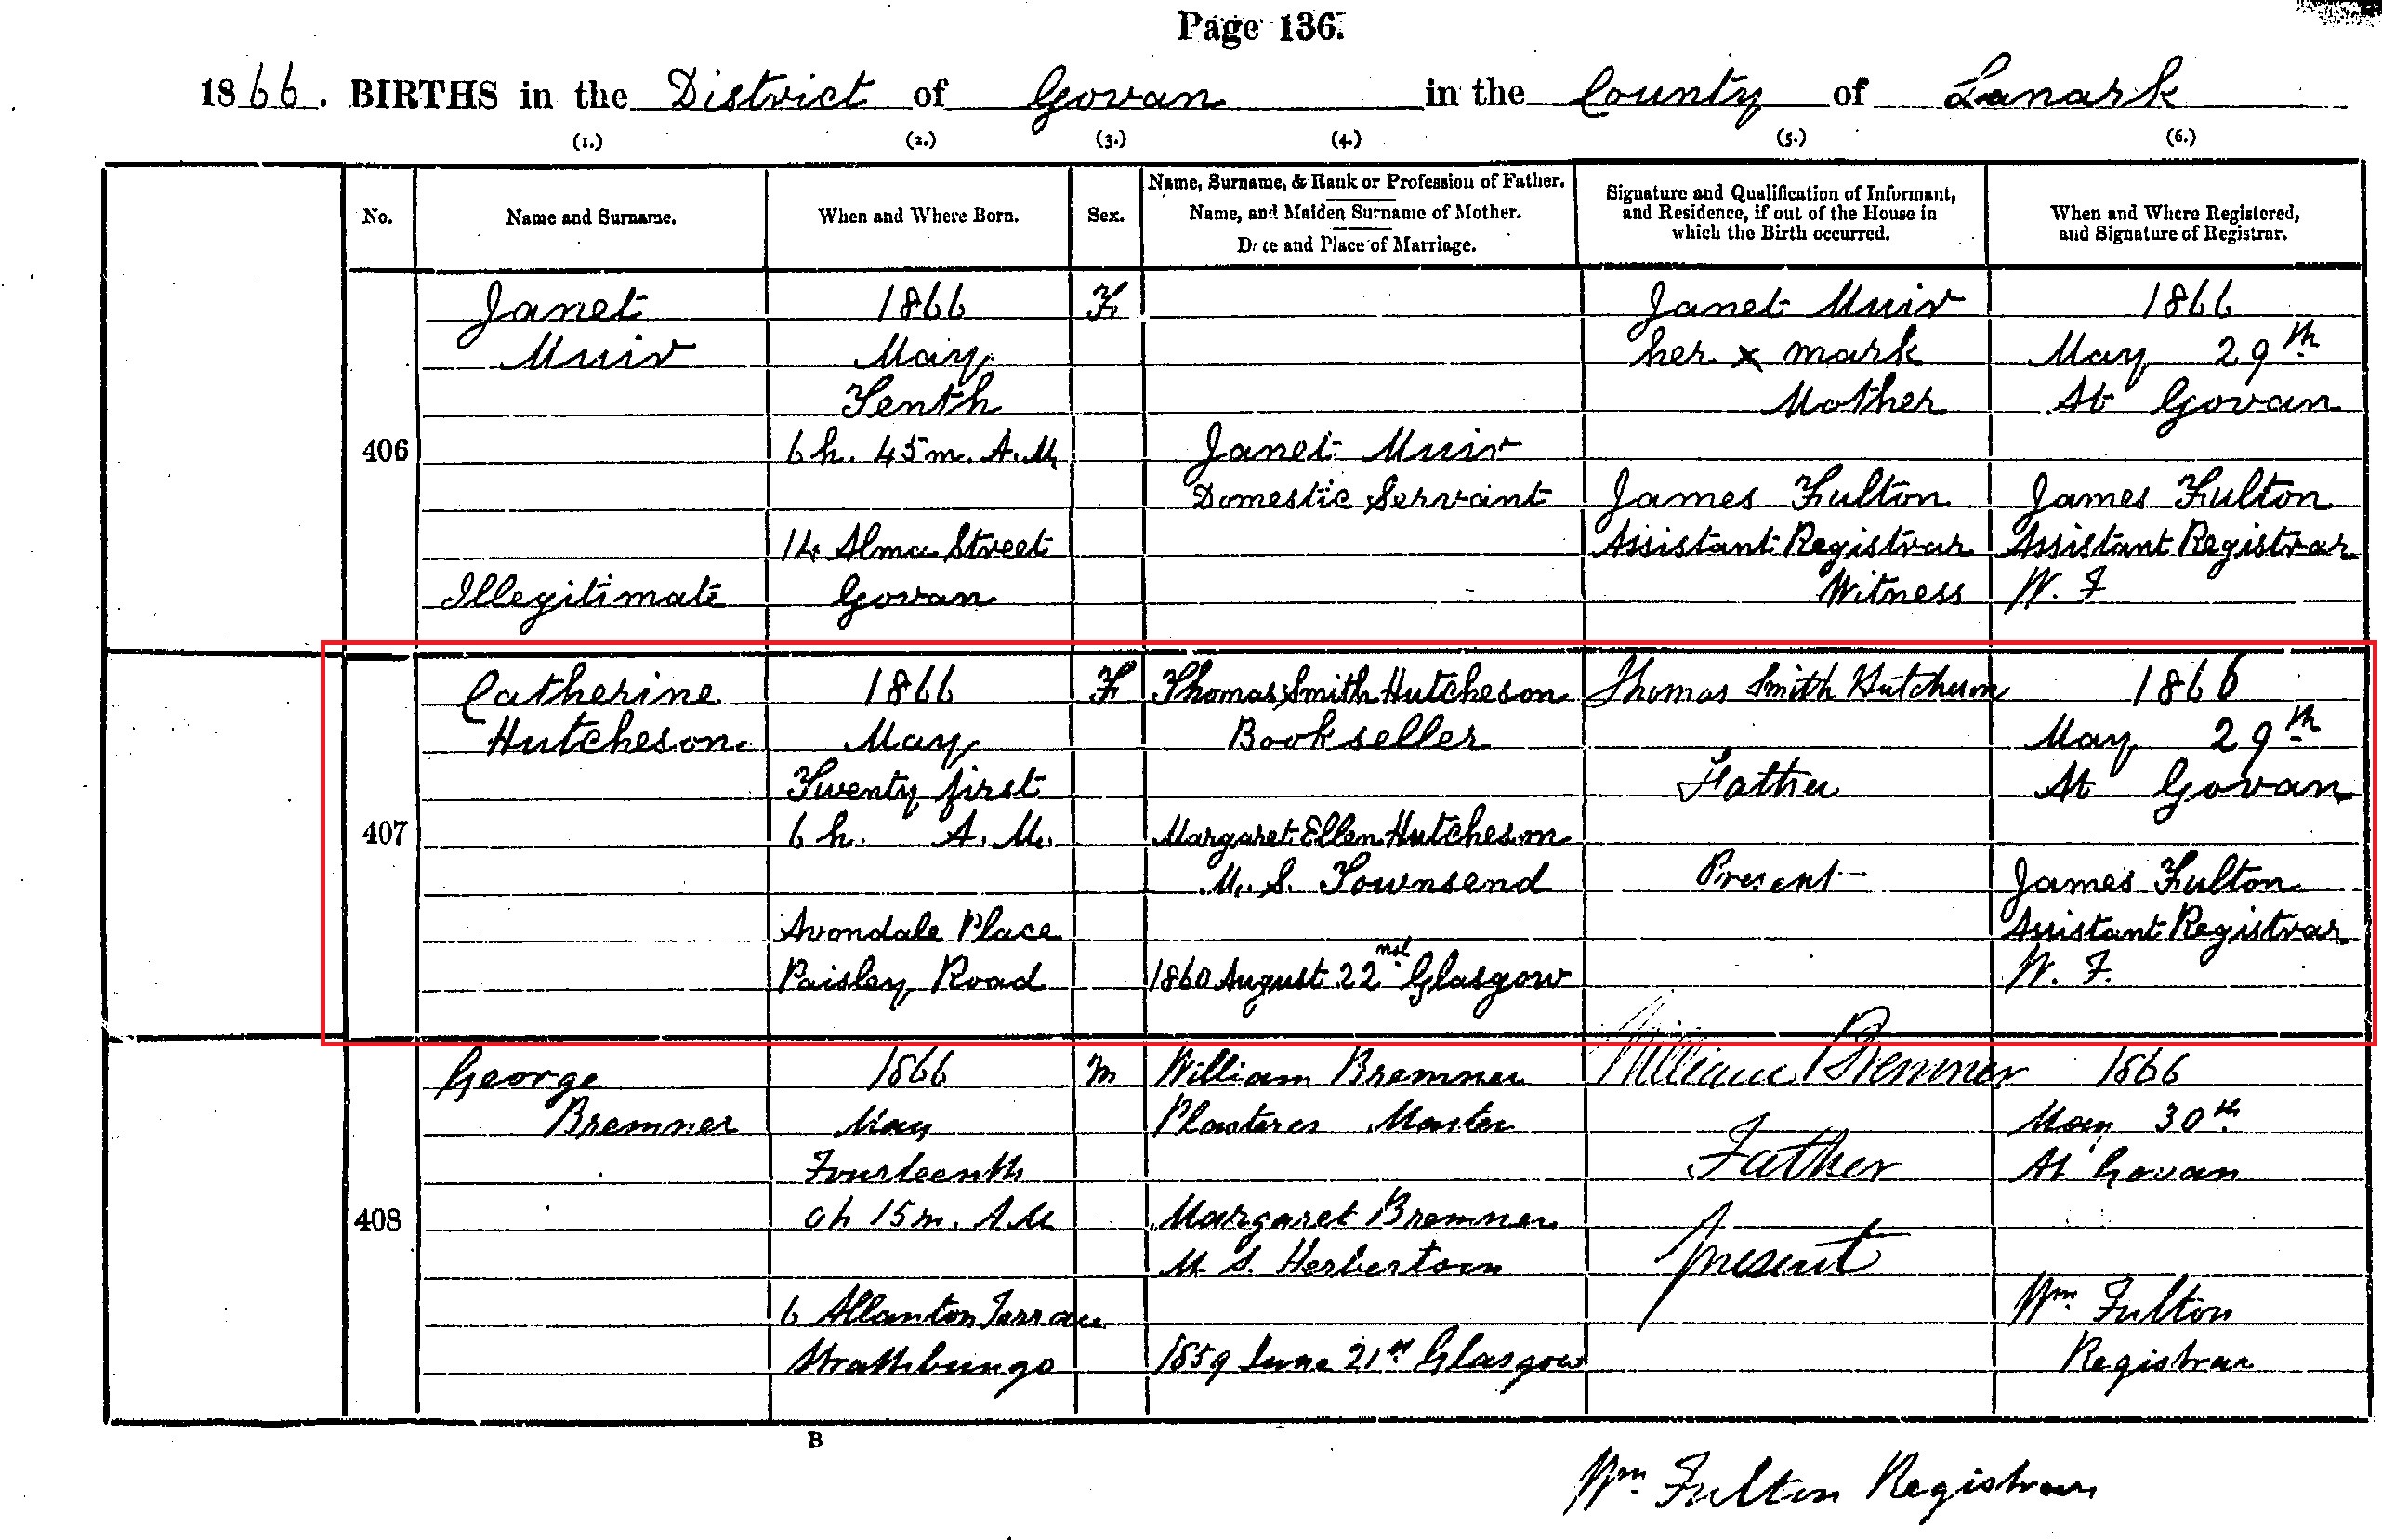 Page 136.
1866. BIRTHS in the District of Govan in the County of Lanark
(1.) (2.) (3.) (4.) (5.) (6.)
No. Name and Surname. When and Where Born. Sex. Name, Surname, & Rank or Profession of Father.
Name, and Maiden Surname of Mother.
Date and Place of Marriage. Signature and Qualification of Informant,
and Residence, if out of the House in
which the Birth occurred. When and Where Registered,
and Signature of Registrar.
Janet 1866 F Janet Muir 1866
Muir May her x mark May 29th
Tenth Mother At Govan
406 6 h. 45 m. A.M. Janet Muir
Domestic Servant James Fulton James Fulton
14 Alma Street Assistant Registrar Assistant Registrar
Illegitimate Govan Witness W. F
Catherine 1866 F Thomas Smith Hutcheson Thomas Smith Hutcheson 1866
Hutcheson. May Bookseller May 29th
Twenty first Father At Govan
407 6 h. A. M. Margaret Ellen Hutcheson
M. S. Townsend Present James Fulton
Avondale Place Assistant Registrar
Paisley Road 1860 August 22nd Glasgow W. F.
George 1866 M William Bremner William Bremner 1866
Bremner May Plasterer Master May 30th
Fourteenth Father At Govan
408 0h 15m. A M Margaret Bremner
M. S. Herbertson present
6 Allanton Terrace Wm. Fulton
Strathbungo 1859 June 21st Glasgow Registrar
B
Wm. Fulton Registrar